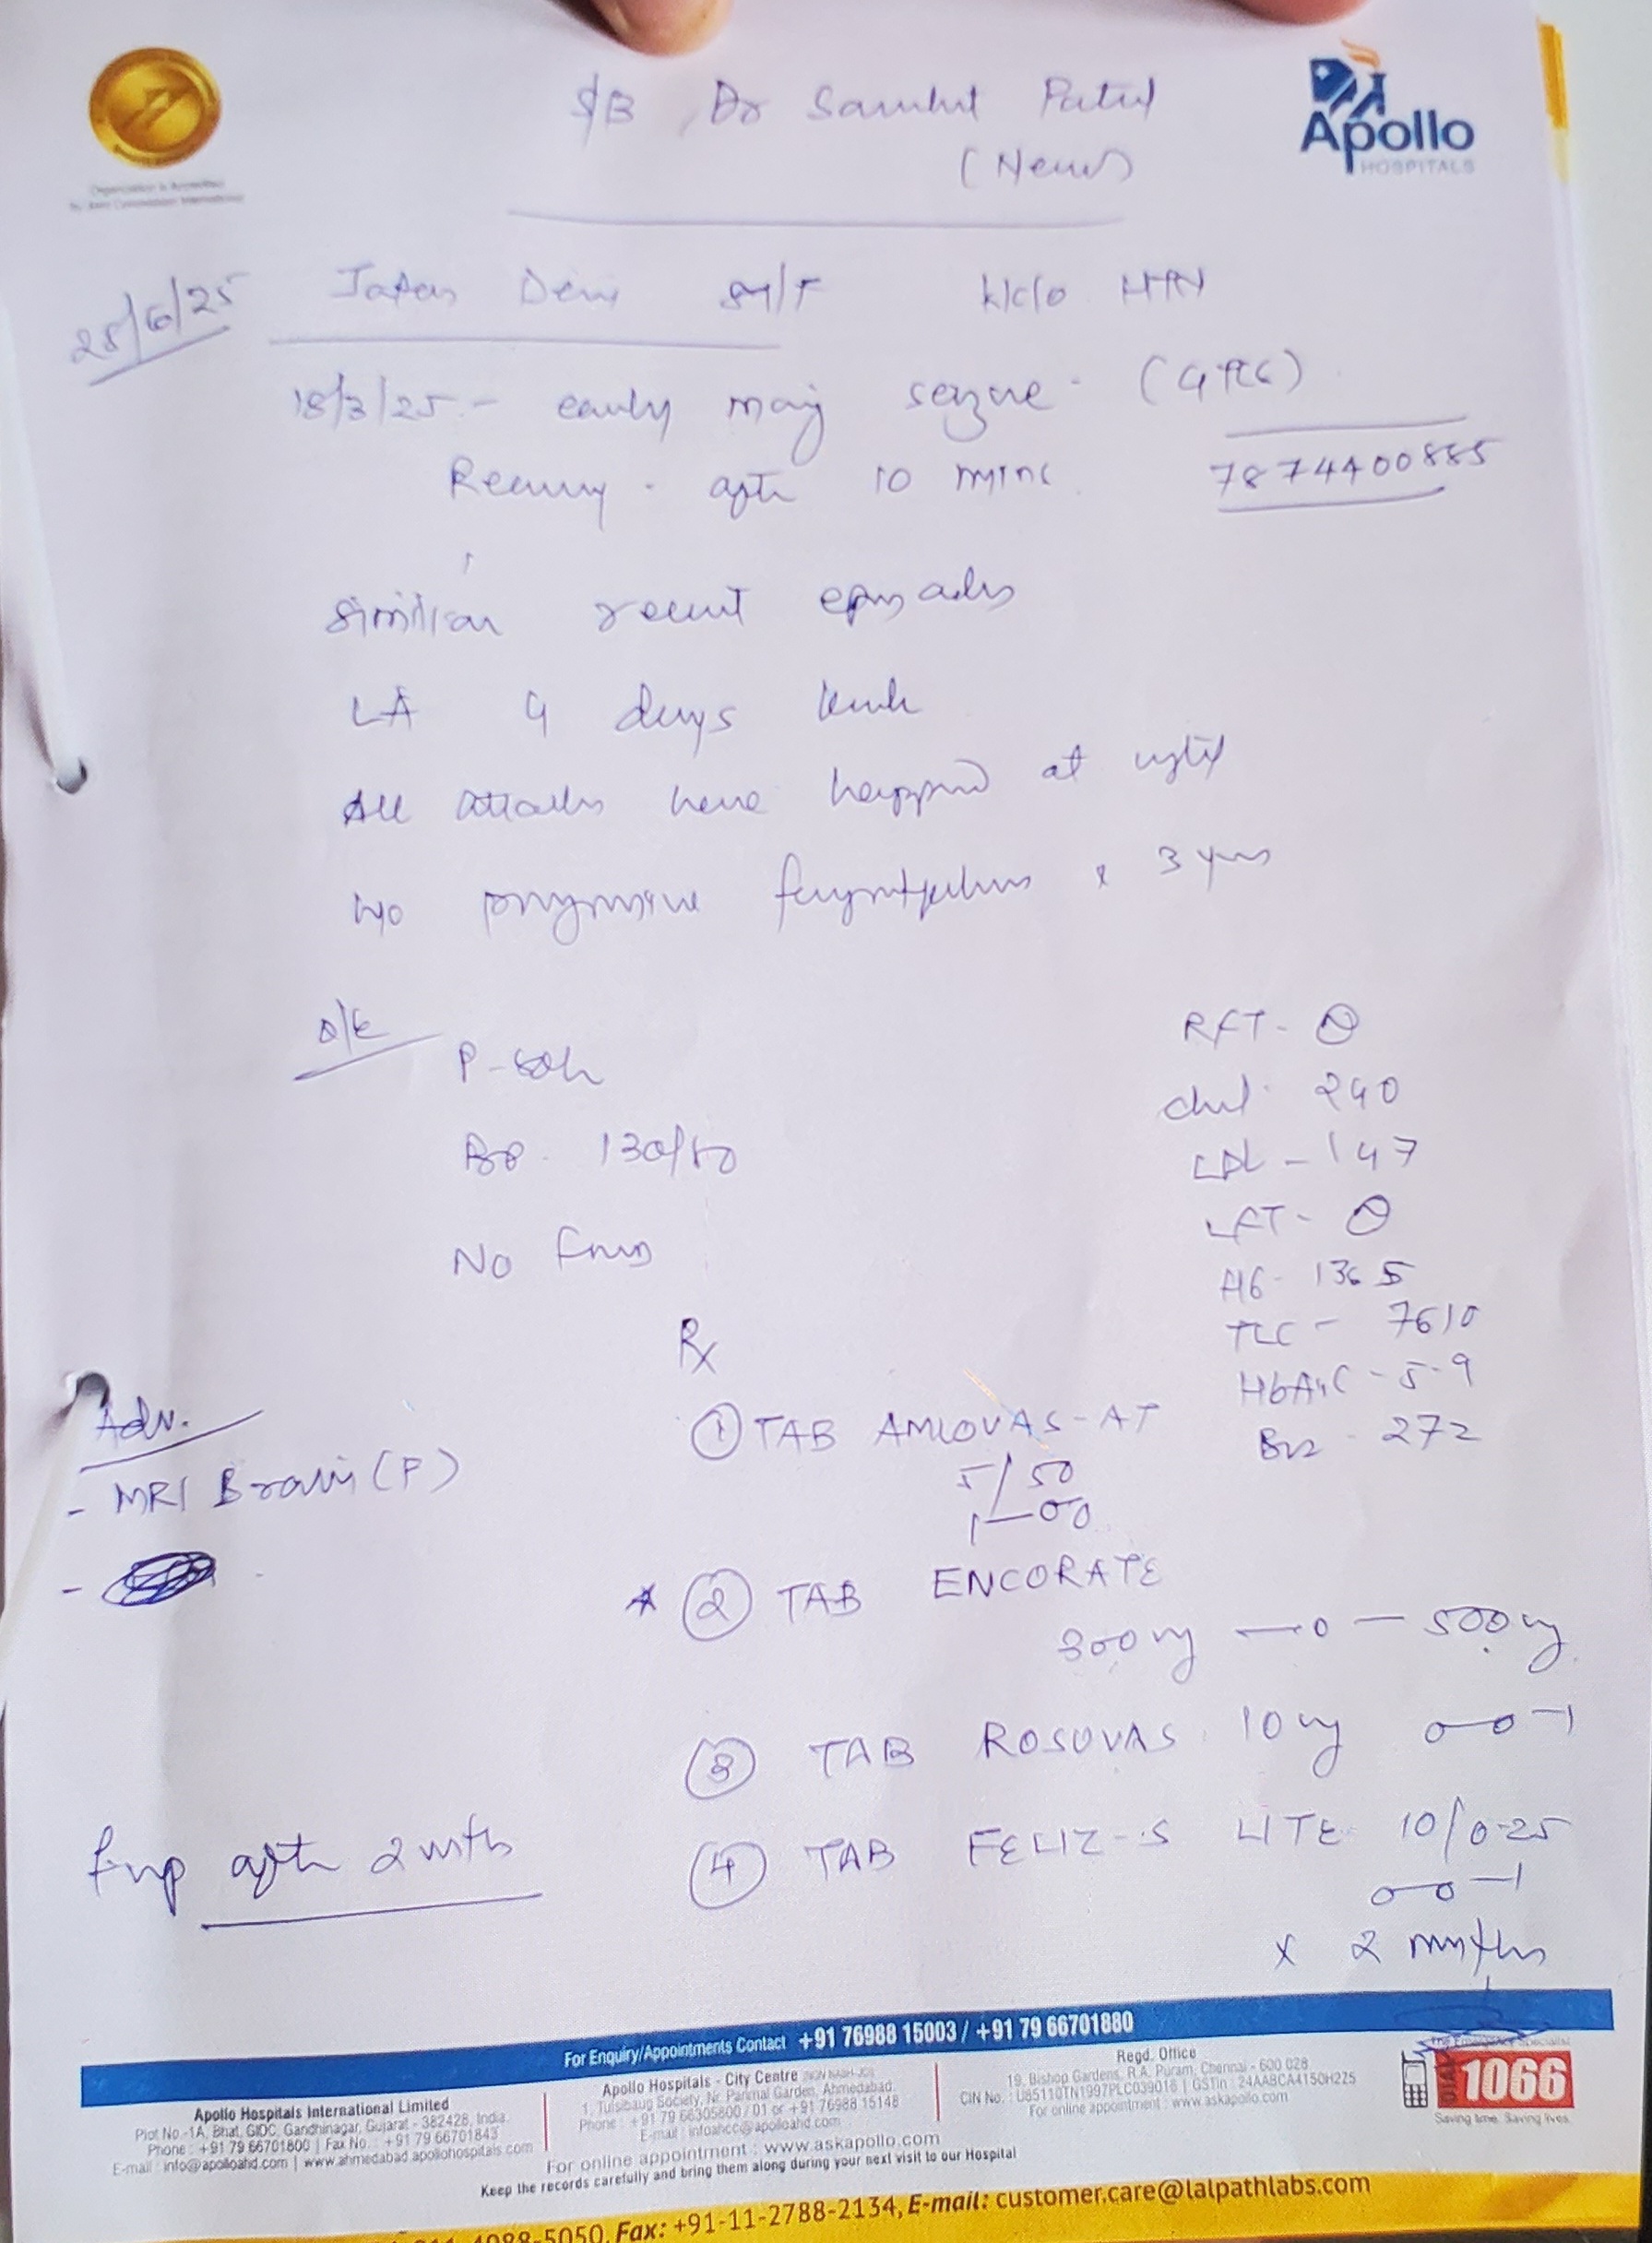 S/B, Dr Samhit Patel
(Neuro)
Apollo
HOSPITALS
Organization is Accredited
By Joint Commission International
28/6/25 Devi k/c/o HTN
18/3/25 - early seizure - (GTCS)
Recovery - after 10 mins
7874400885
similar recurrent episodes
LA 4 days back
All attacks have happened at night
H/o progressive forgetfulness x 3 yrs
O/E
P-80/m
BP - 130/80
No FND
RFT - N
chol - 240
LDL - 147
LFT - N
HbA1c - 5.9
TLC - 7610
B12 - 272
Adv.
- MRI Brain (P)
-
Rx
① TAB AMLOVAS-AT
5/50
1-0-0
* ② TAB ENCORATE
300mg - 0 - 500mg
③ TAB ROSUVAS 10mg 0-0-1
④ TAB FELIZ-S LITE 10/0.25
0-0-1
x 2 months
f/up after 2 mths
For Enquiry/Appointments Contact +91 76988 15003 / +91 79 66701880
Apollo Hospitals International Limited
Plot No.-1A, Bhat, GIDC, Gandhinagar, Gujarat - 382428, India.
Phone : +91 79 66701800 | Fax No. : +91 79 66701843
E-mail : info@apolloahd.com | www.ahmedabad.apollohospitals.com
Apollo Hospitals - City Centre
1, Tulsibaug Society, Nr. Parimal Garden, Ahmedabad.
Phone : +91 79 66305800 / 01 or +91 76988 15148
E-mail : infoahcc@apolloahd.com
Regd. Office
19, Bishop Gardens, R.A. Puram, Chennai - 600 028
CIN No. : U85110TN1997PLC039016 | GSTin : 24AABCA4150H2Z5
For online appointment : www.askapollo.com
For online appointment : www.askapollo.com
Keep the records carefully and bring them along during your next visit to our Hospital
1066
Saving time. Saving lives.
4988-5050, Fax: +91-11-2788-2134, E-mail: customer.care@lalpathlabs.com